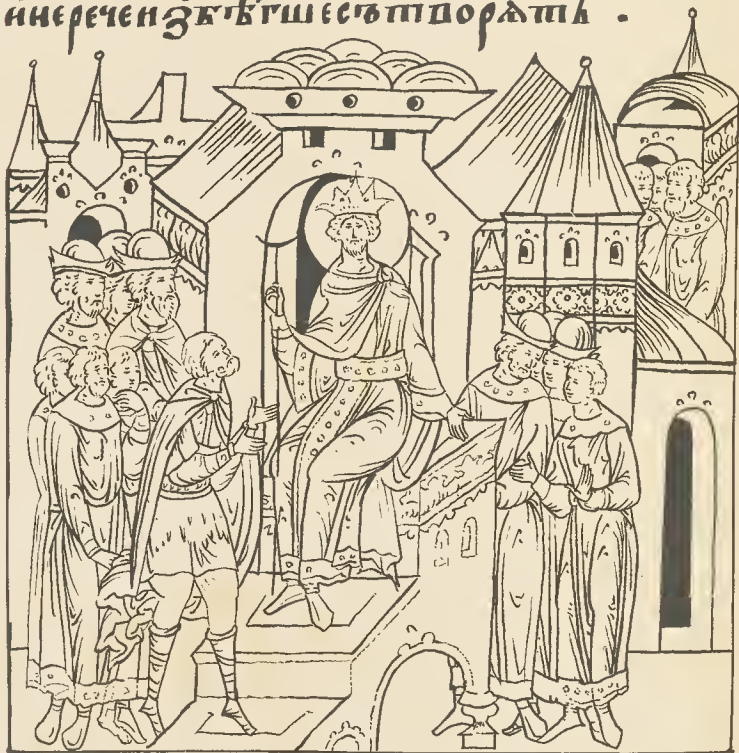 инеречен ꙁбѣгшесътворѧть .